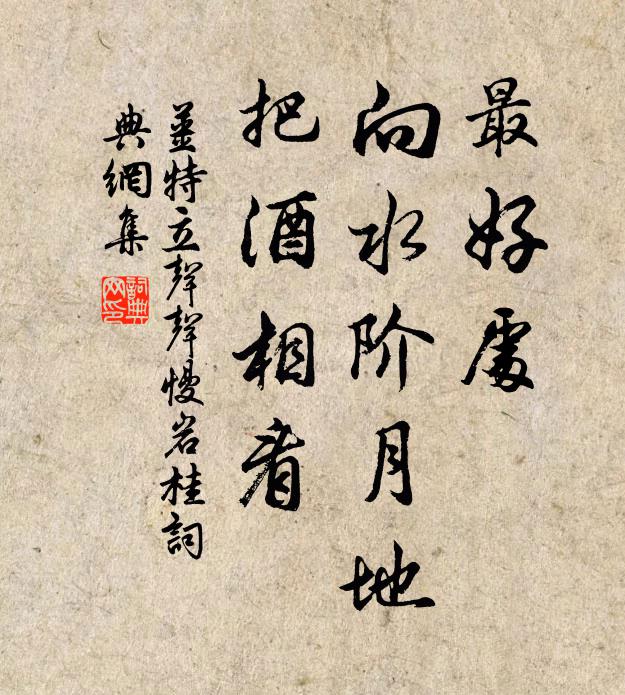 最好處
向水阶月地
把酒相看
姜特立聲聲慢岩桂詞
典網集
詞典
网印